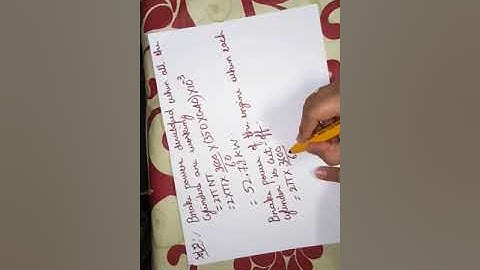 Sol²:- Brake power developed when all the
cylinders are working
= 2πNT
= 2×π× 3600/60 × (350×0.40)×10⁻³
= 52.77 KW.
Brake power of the engine when each
cylinder is cut off:
= 2π× 3600/6